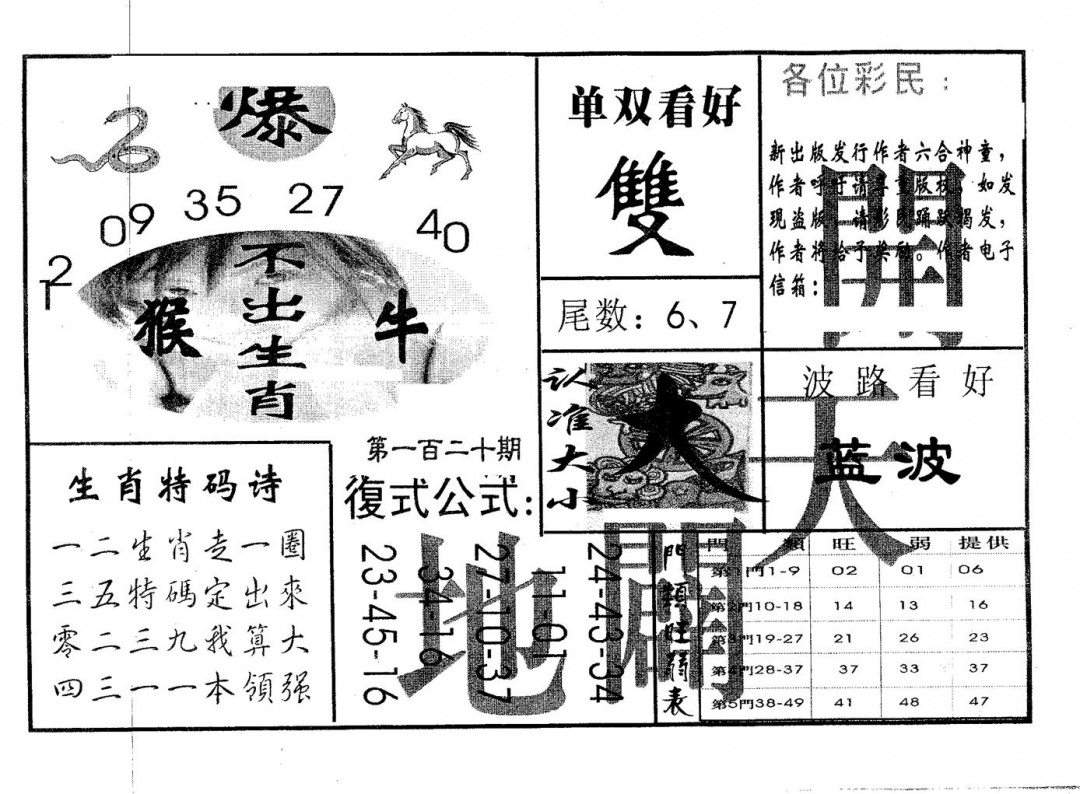 爆
09 35 27 40
12
猴
不出生肖
牛
单双看好
雙
尾数：6、7
各位彩民：
新出版发行作者六合神童，
作者呼吁请尊重版权。如发
现盗版，请彩民踊跃揭发，
作者将给予奖励。作者电子
信箱：
認准大小
大
波路看好
蓝波
開天
闢地
生肖特码诗
一二生肖走一圈
三五特碼定出來
零二三九我算大
四三一一本領强
第一百二十期
復式公式：
24-43-34
11-01
27-10-37
34-16
23-45-16
門類旺弱表
門類 旺 弱 提供
第1門1-9 02 01 06
第2門10-18 14 13 16
第3門19-27 21 26 23
第4門28-37 37 33 37
第5門38-49 41 48 47